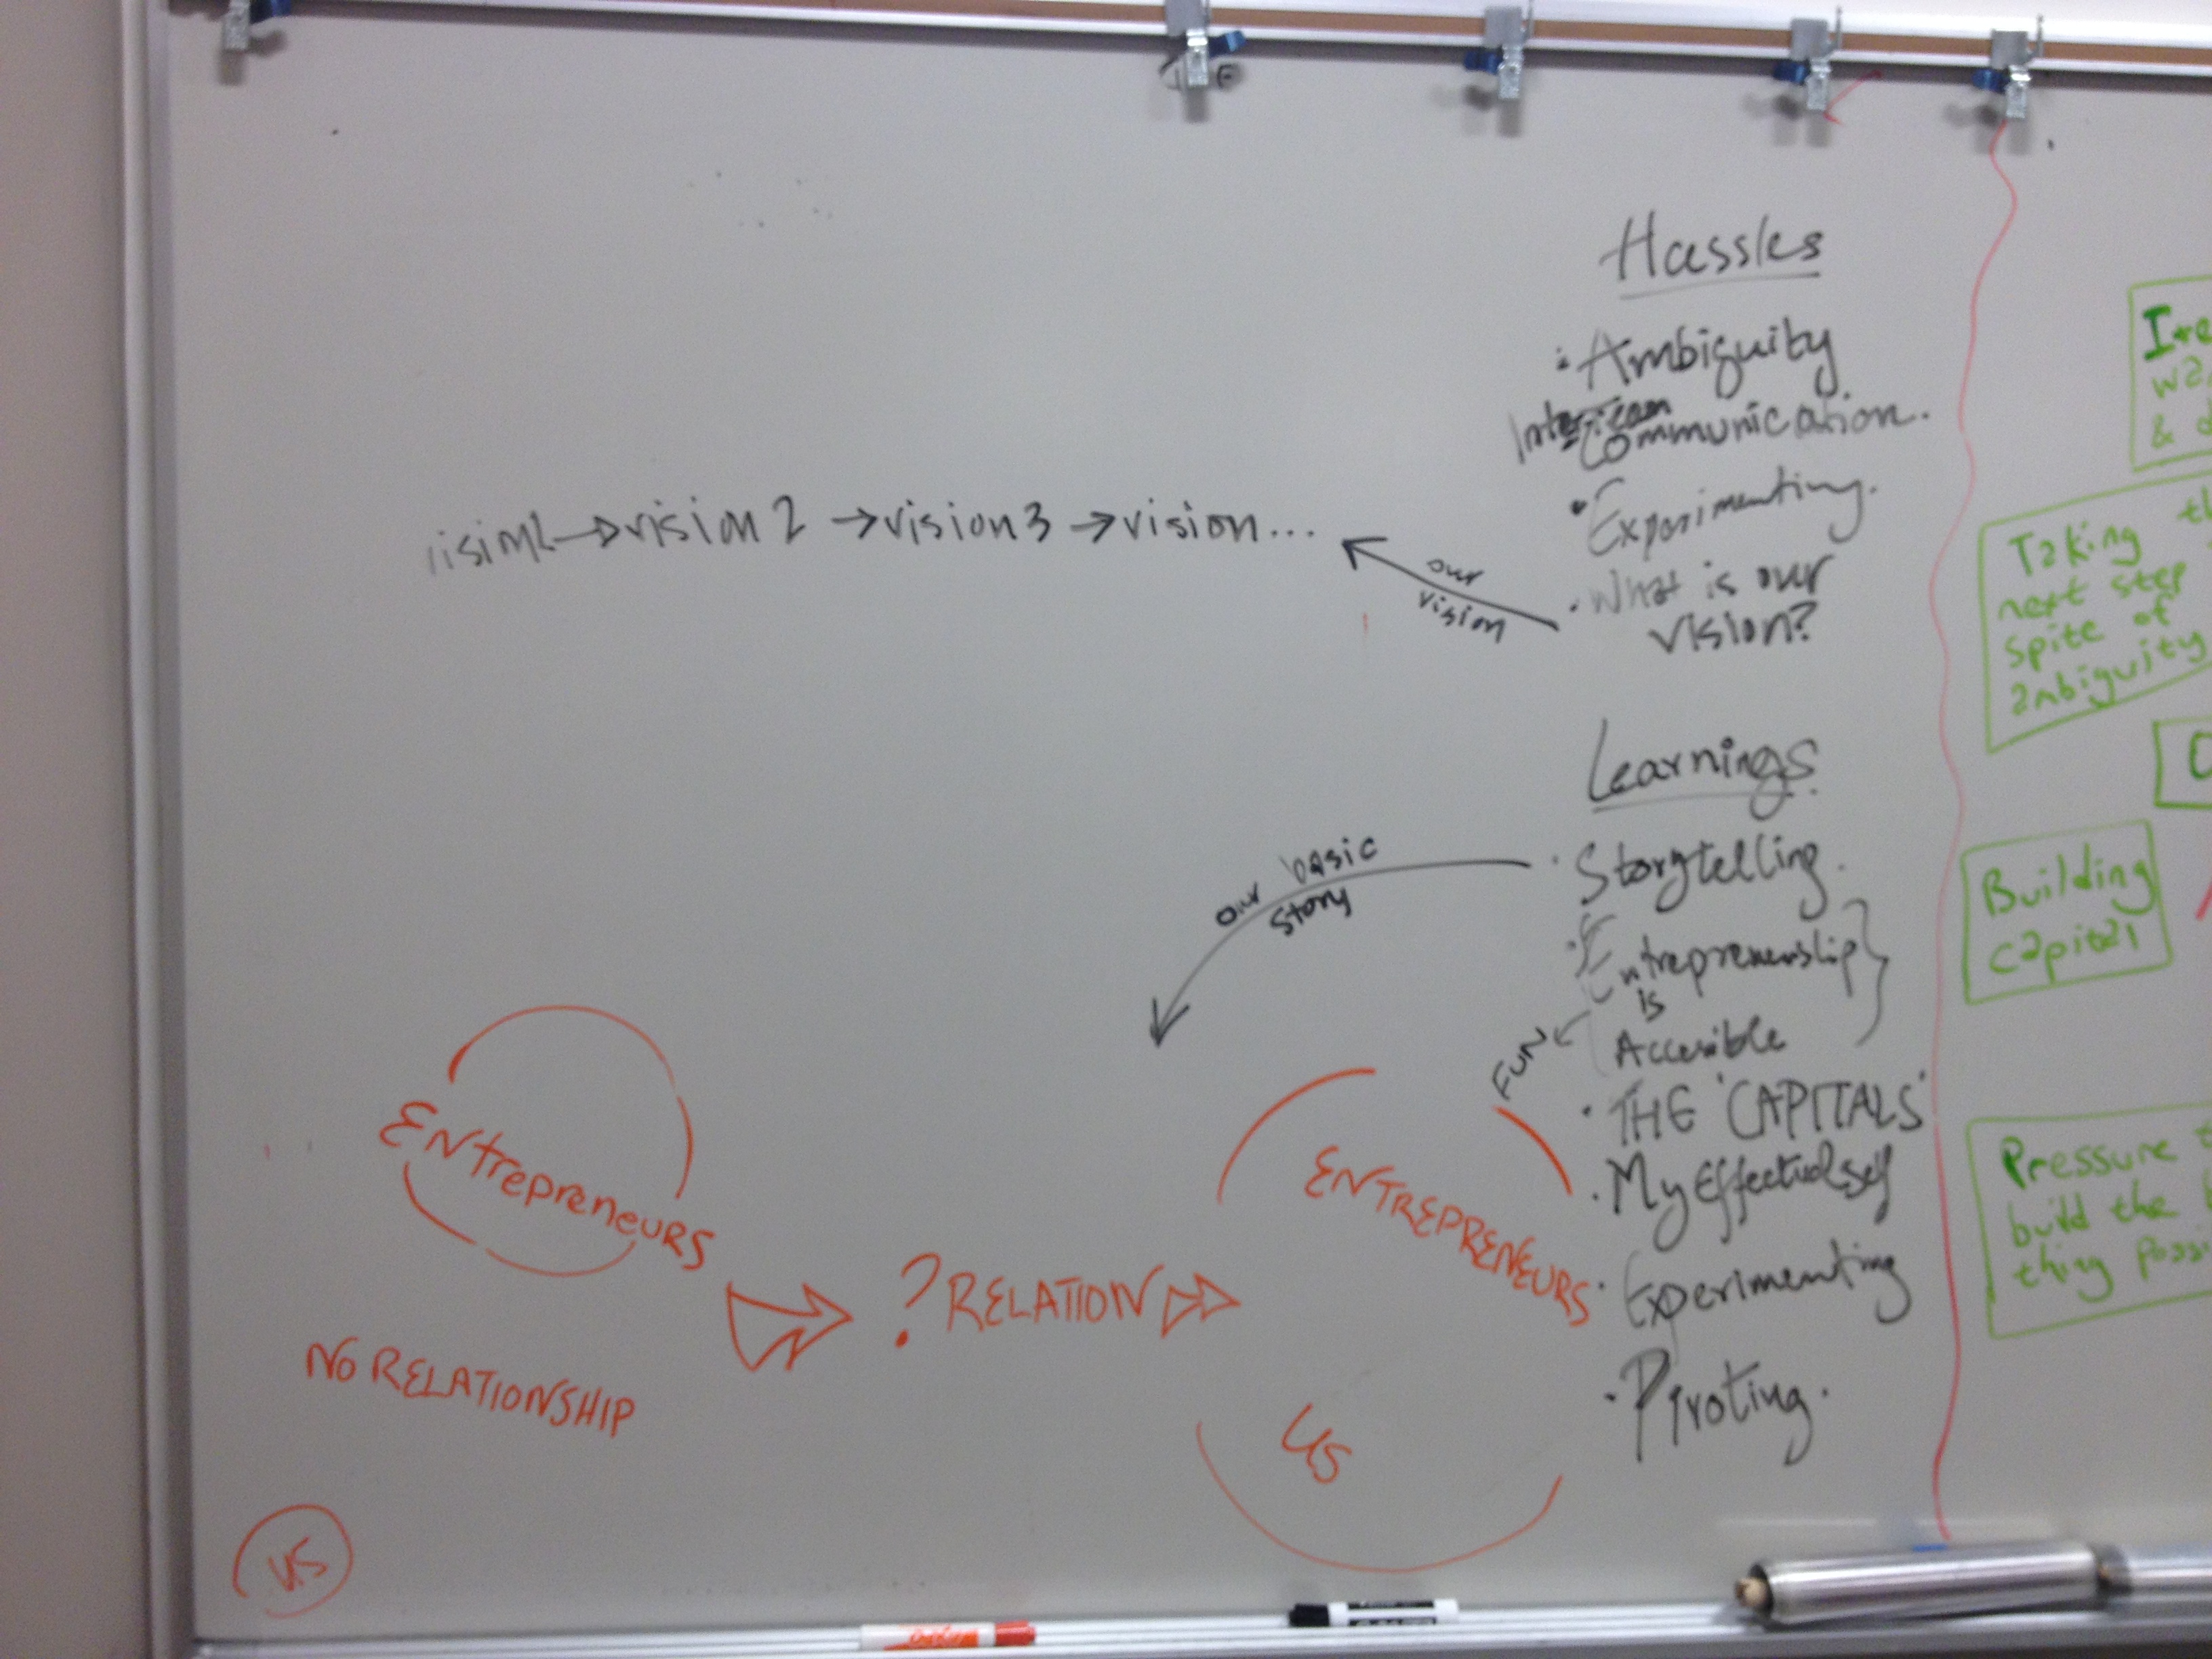 Hassles
• Ambiguity
Inter-team
Communication.
• Experimenting.
• What is our
vision?
our
vision
vision1 → vision 2 → vision 3 → vision...
Learnings
• Storytelling.
• Entrepreneurship
is
Accesible
FUN
• THE 'CAPITALS'
• My Effectual self
• Experimenting
• Pivoting.
our basic
story
ENtrepreneURS
NO RELATIONSHIP
US
? RELATION
ENTREPRENEURS
US
&
Taking
next step
spite of
ambiguity
Building
capital
Pressure
build the
thing